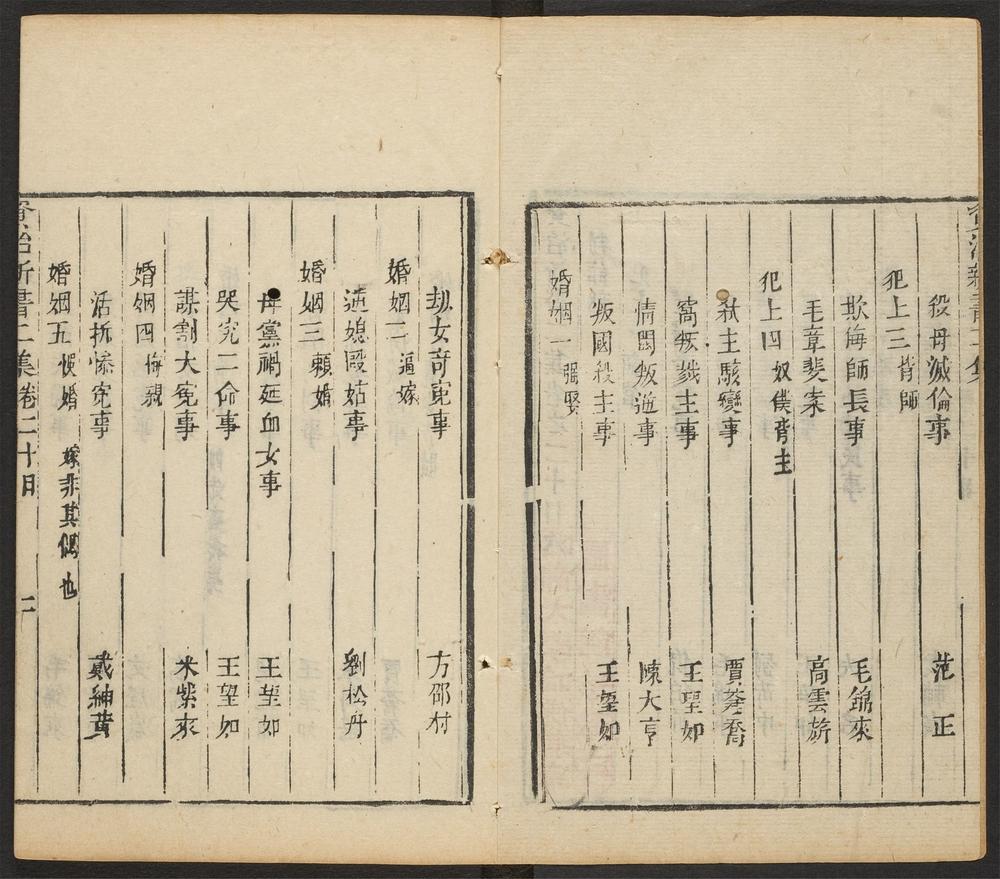 殺母滅倫事 范正
犯上三 背師
欺侮師長事 毛錦來
毛韋斐案 高雲旂
犯上四 奴僕背主
弒主駭變事 賈菴喬
窩叛戮主事 王望如
情關叛逆事 陳大亨
叛國殺主事 王望如
婚姻一 强娶
劫女奇寃事 方邵村
婚姻二 逼嫁
逐媳毆姑事 劉松丹
婚姻三 賴婚
毋黨禍延血女事 王望如
哭究二命事 王望如
謀割大寃事 米紫來
婚姻四 悔親
活拆慘寃事 戴紳黃
婚姻五 悞婚 嫁非其偶也
資治新書二集卷二十目 二